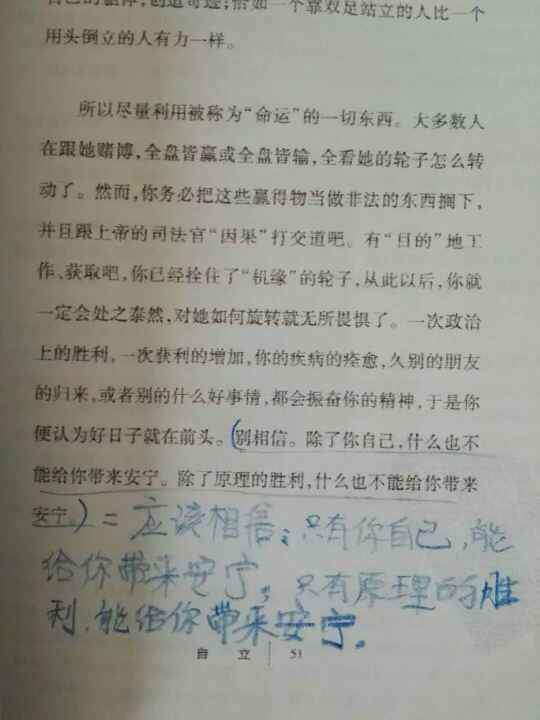 自己的躯体,创造奇迹;恰如一个靠双足站立的人比一个
用头倒立的人有力一样。
所以尽量利用被称为“命运”的一切东西。大多数人
在跟她赌博,全盘皆赢或全盘皆输,全看她的轮子怎么转
动了。然而,你务必把这些赢得物当做非法的东西搁下,
并且跟上帝的司法官“因果”打交道吧。有“目的”地工
作、获取吧,你已经拴住了“机缘”的轮子,从此以后,你就
一定会处之泰然,对她如何旋转就无所畏惧了。一次政治
上的胜利,一次获利的增加,你的疾病的痊愈,久别的朋友
的归来,或者别的什么好事情,都会振奋你的精神,于是你
便认为好日子就在前头。(别相信。除了你自己,什么也不
能给你带来安宁。除了原理的胜利,什么也不能给你带来
安宁。)=应该相信:只有你自己,能
给你带来安宁。只有原理的胜
利,能给你带来安宁。
自 立 51